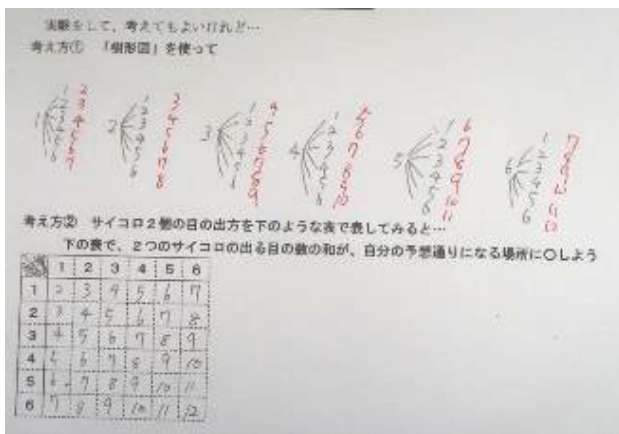 実験をして、考えてもよいけれど…
考え方① 「樹形図」を使って
1 1 2 3 4 5 6 2 3 4 5 6 7
2 1 2 3 4 5 6 3 4 5 6 7 8
3 1 2 3 4 5 6 4 5 6 7 8 9
4 1 2 3 4 5 6 5 6 7 8 9 10
5 1 2 3 4 5 6 6 7 8 9 10 11
6 1 2 3 4 5 6 7 8 9 10 11 12
考え方② サイコロ2個の目の出方を下のような表で表してみると…
下の表で、2つのサイコロの出る目の数の和が、自分の予想通りになる場所に〇しよう
1 2 3 4 5 6
1 2 3 4 5 6 7
2 3 4 5 6 7 8
3 4 5 6 7 8 9
4 5 6 7 8 9 10
5 6 7 8 9 10 11
6 7 8 9 10 11 12